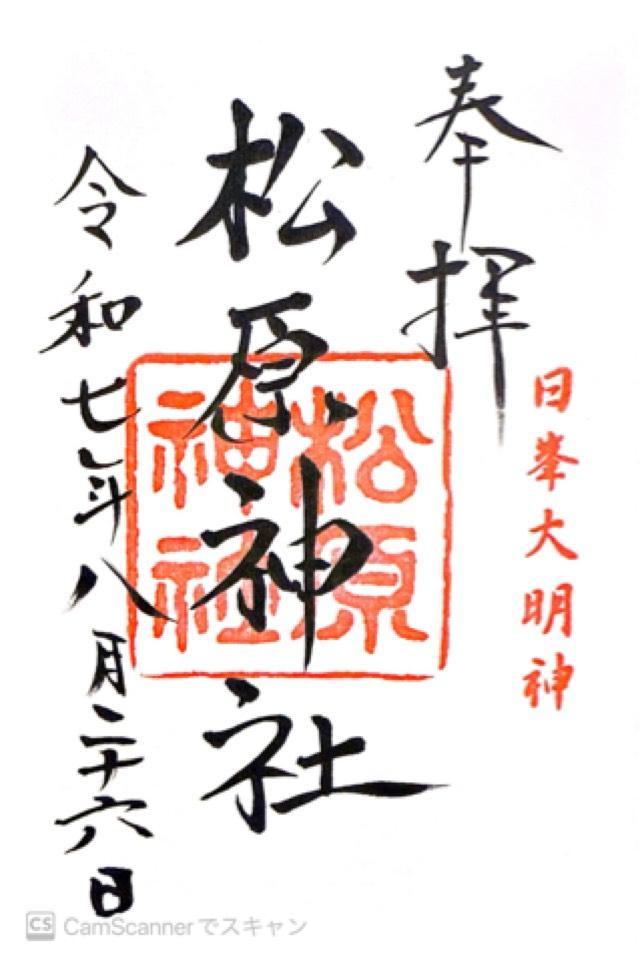 奉拝
日峯大明神
松原神社
松原神社
令和七年八月二十六日
CS CamScannerでスキャン